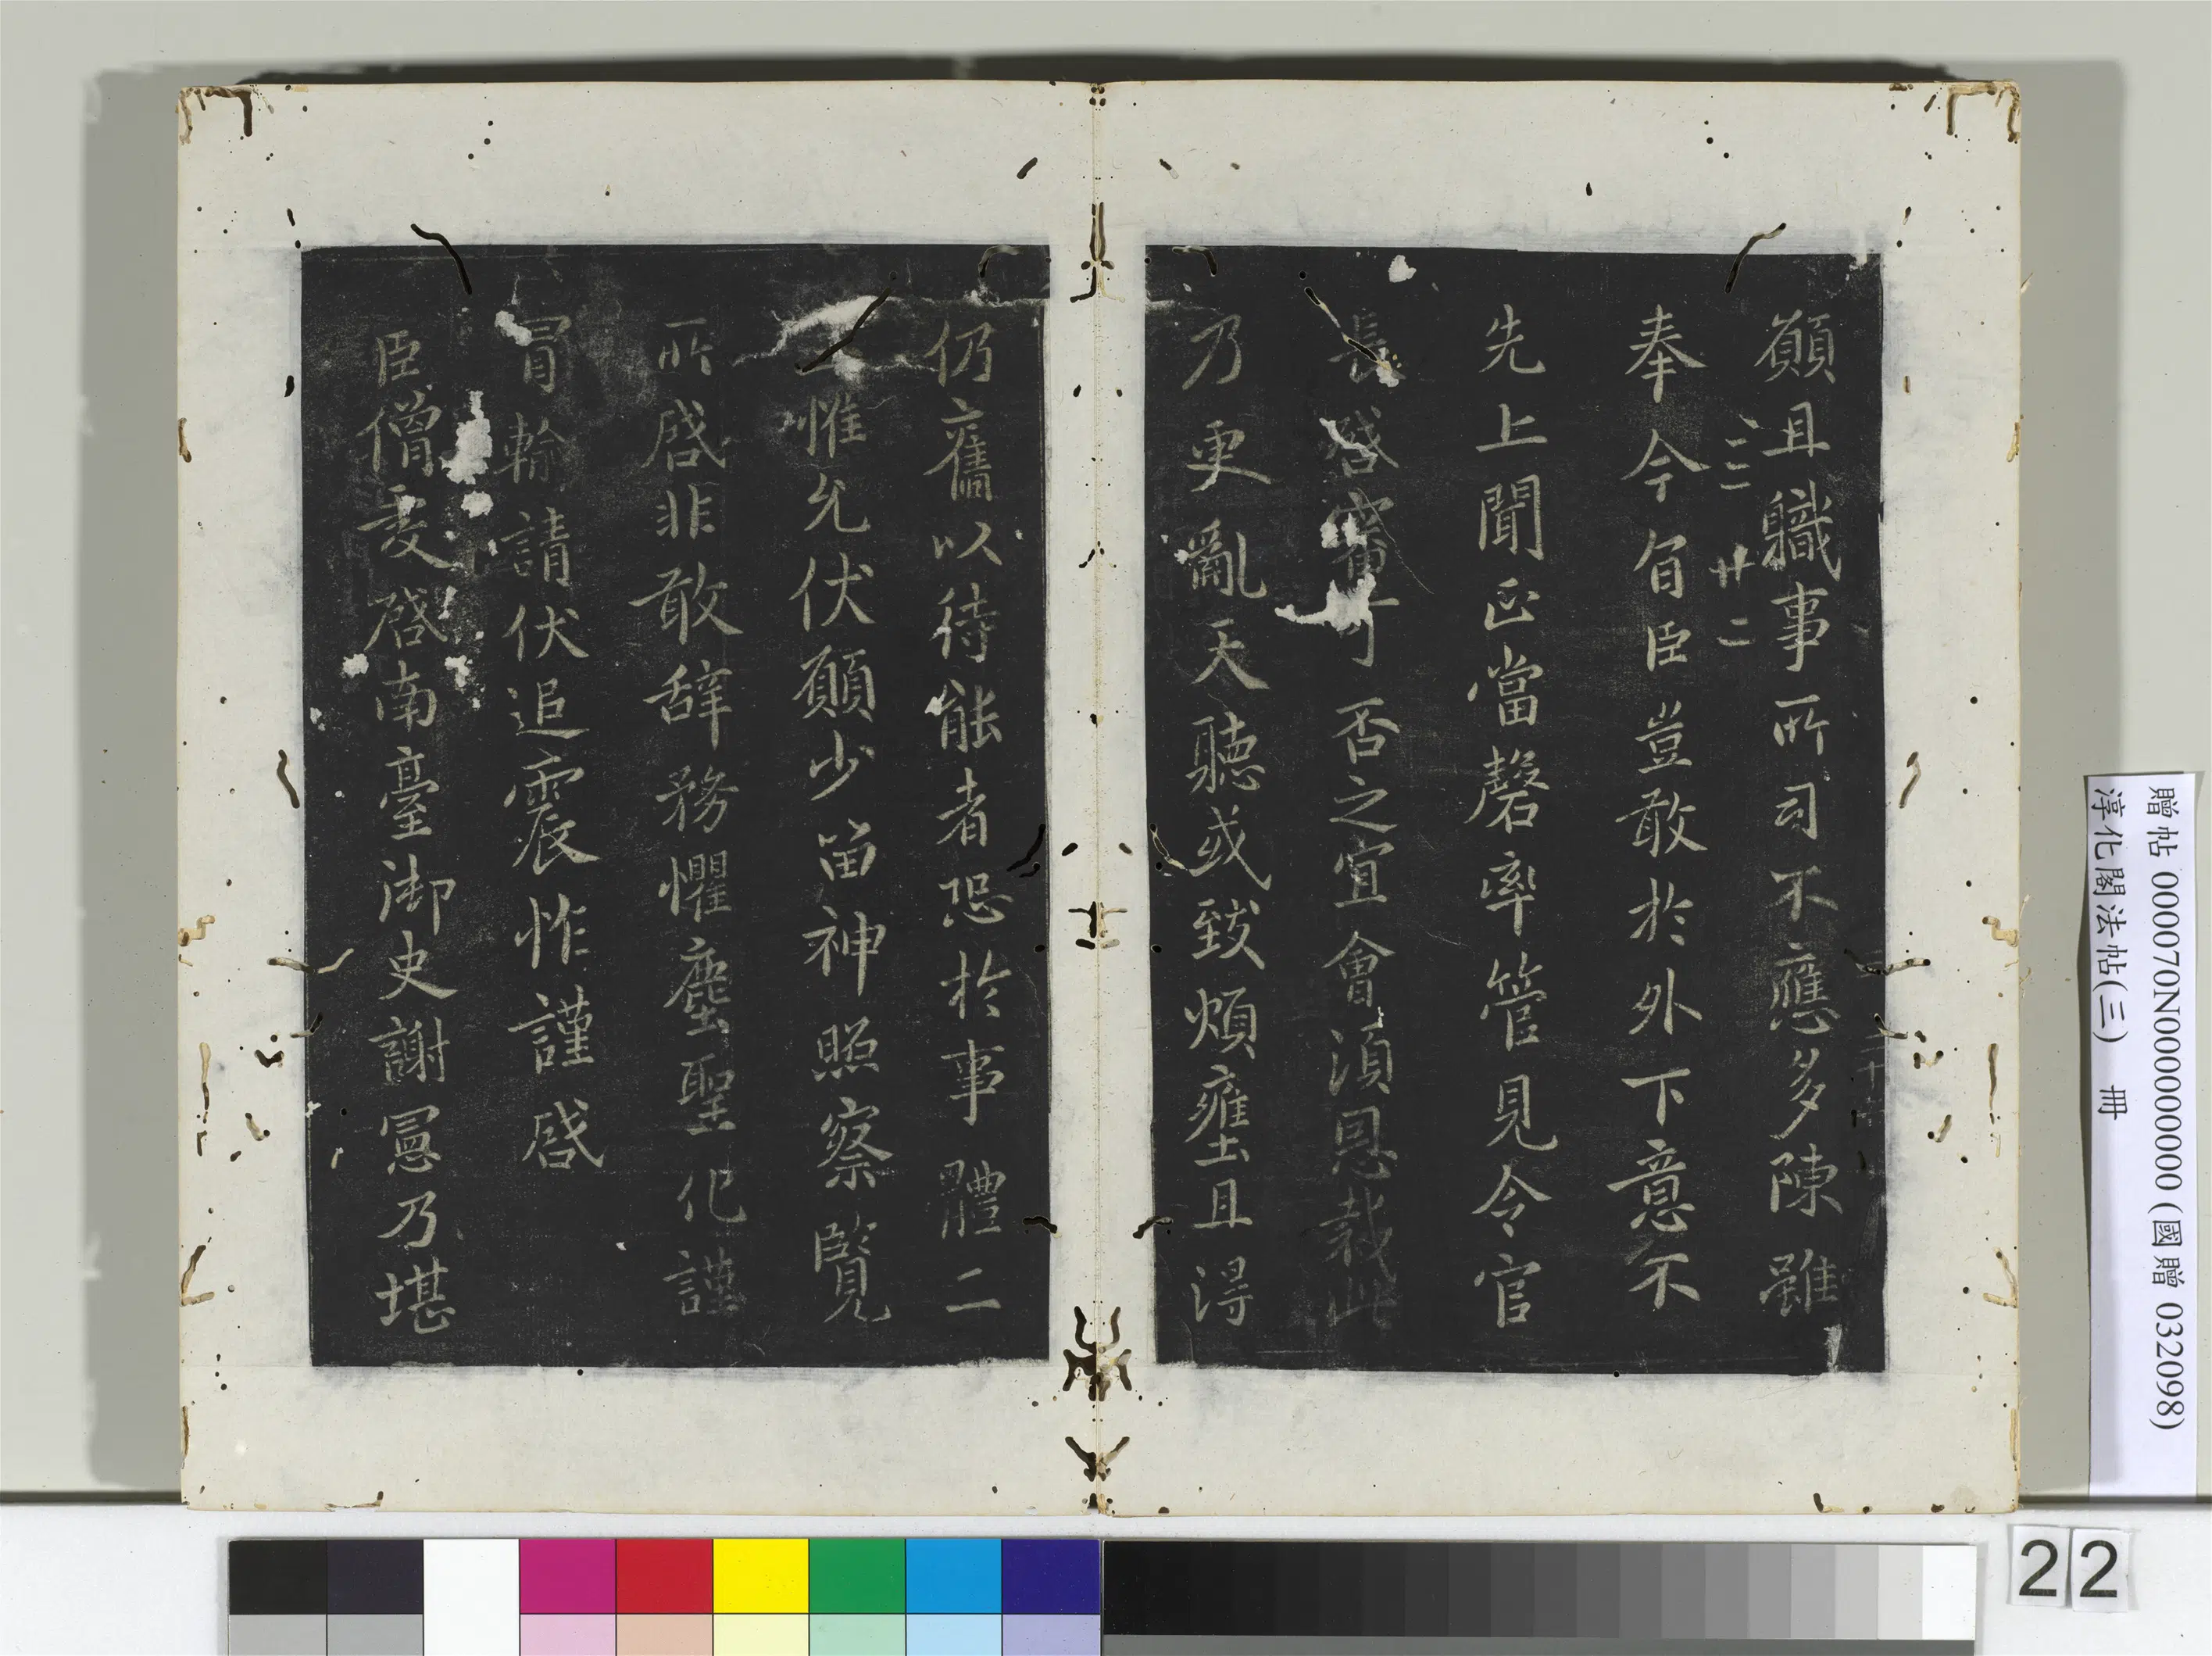 願且職事所司不應多陳雖
三 廿二
奉今旨臣豈敢於外下意不
先上聞正當罄率管見令官
長啓審可否之宜會須恩裁此
乃更亂天聽或致煩壅且得
仍舊以待能者恐於事體二
三惟允伏願少留神照察覽
所啓非敢辞務懼塵聖化謹
冒輸請伏追震怍謹啓
臣僧虔啓南臺御史謝憲乃堪
贈帖 000070N000000000 (國贈 032098)
淳化閣法帖(三) 冊
22